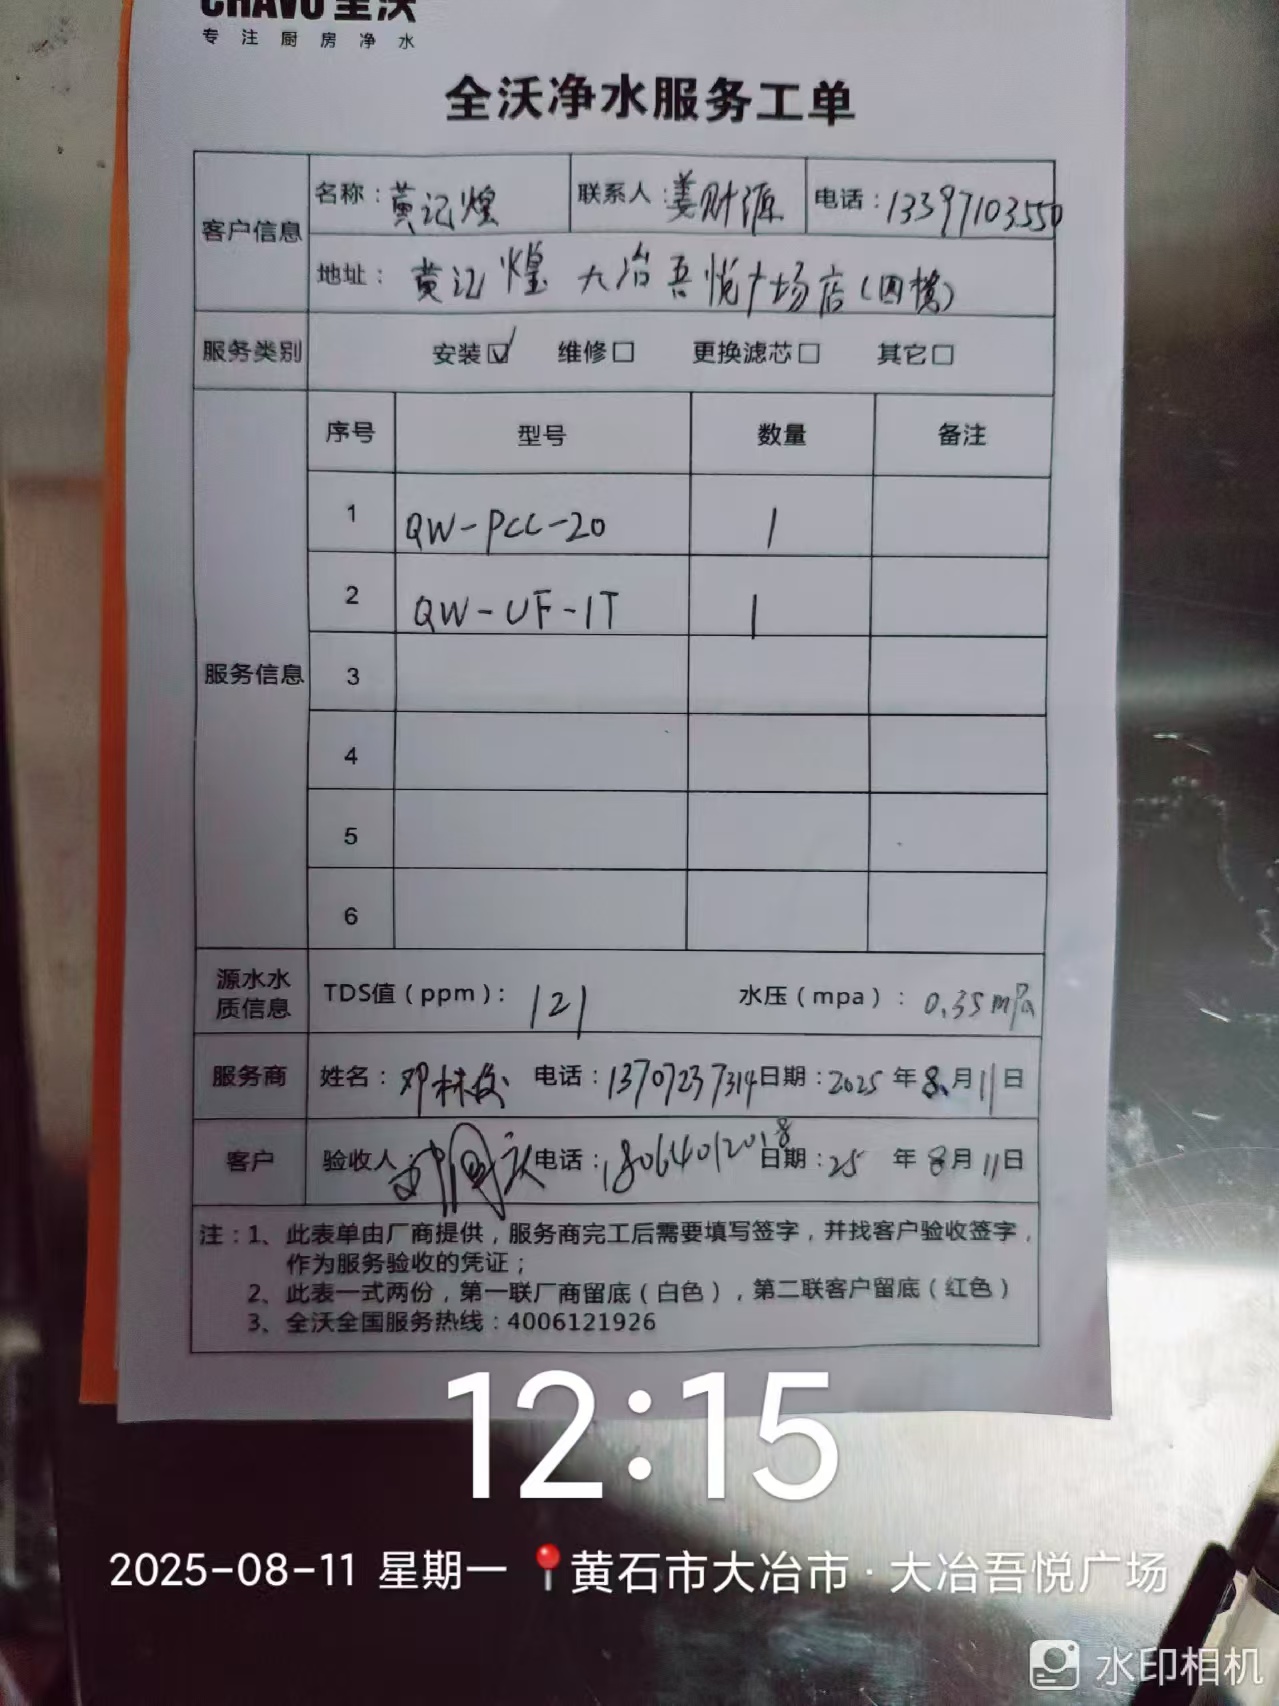 CHAVO 全沃
专注厨房净水
全沃净水服务工单
客户信息
名称：黄记煌 联系人：姜财源 电话：13397103550
地址：黄记煌 大冶吾悦广场店（四楼）
服务类别 安装☑ 维修□ 更换滤芯□ 其它□
服务信息
序号 型号 数量 备注
1 QW-PCC-20 1
2 QW-UF-1T 1
3
4
5
6
源水水质信息 TDS值（ppm）：121 水压（mpa）：0.35mPa
服务商 姓名：邓林俊 电话：13707237314 日期：2025年8月11日
客户 验收人 电话：18064012018 日期：25年8月11日
注：1、此表单由厂商提供，服务商完工后需要填写签字，并找客户验收签字，
作为服务验收的凭证；
2、此表一式两份，第一联厂商留底（白色），第二联客户留底（红色）
3、全沃全国服务热线：4006121926
12:15
2025-08-11 星期一 黄石市大冶市·大冶吾悦广场
水印相机